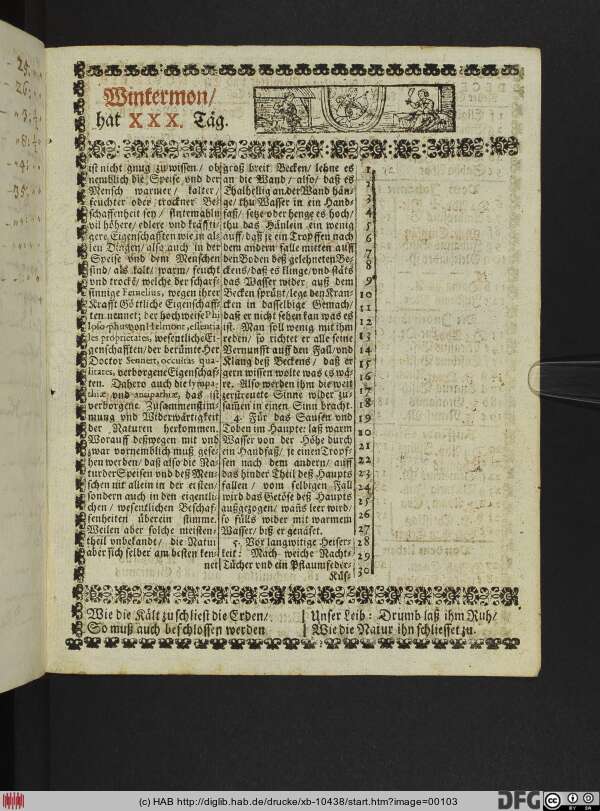 Wintermon/
hat XXX. Täg.
ist nicht gnug zu wissen / ob
nemblich die Speise vnd der
Mensch warmer / kalter /
feuchter oder trockner Be-
schaffenheit sey / sintemahln
vil höhere / edlere vnd kräffti-
gere Eigenschafften wie in al-
len Dingen / also auch in der
Speise vnd dem Menschen
sind / als kalt / warm / feucht
vnd trockē / welche der scharf-
sinnige Fernelius, wegen ihrer
Krafft Göttliche Eigenschaff-
ten nennet; der hochweise Phi
losophus von Helmont, essentia
les proprietates, wesentliche Ei-
genschafften / der berümte Her
Doctor Sennert, occultas qua-
litates, verborgene Eigerschaf-
ten. Dahero auch die sympa-
thiæ vnd antipathiæ, das ist
verborgene Zusammenstim-
mung vnd Widerwärtigkeit
der Naturen herkommen.
Worauff deßwegen mit vnd
zwar vornemblich muß gese-
hen werden / daß also die Na-
tur der Speisen vnd deß Men-
schen nit allein in der ersten /
sondern auch in den eigentli-
chen / wesentlichen Beschaf-
fenheiten überein stimme.
Weilen aber solche meisten-
theil vnbekandt / die Natur
aber sich selber am besten ken-
net
groß breit Becken / lehne es
an die Wand / also / daß es
Ehalhellig an der Wand hän-
ge / thu Wasser in ein Hand-
faß / setze oder henge es hoch /
thu das Hänlein ein wenig
auff / daß je ein Tropffen nach
dem andern falle mitten auff
den Boden deß gelehneten Be-
ckens / daß es klinge / vnd stäts
das Wasser wider auß dem
Becken sprützt / lege den Kran-
cken in dasselbige Gemach /
daß er nicht sehen kan was es
ist. Man soll wenig mit ihm
reden / so richtet er alle seine
Vernunfft auff den Fall / vnd
Klang deß Beckens / daß er
gern wissen wolte was es wä-
re. Also werden ihm die weit
zerstreuete Sinne wider zu-
samen in einen Sinn bracht.
4. Für das Sausen vnd
Toben im Haupte: laß warm
Wasser von der Höhe durch
ein Handfaß / je einen Tropf-
fen nach dem andern / auff
das hinder Theil deß Haupts
fallen / vom selbigen Fall
wird das Getöse deß Haupts
außgezogen / wañs leer wird /
so fülls wider mit warmem
Wasser / biß er genäset.
5. Vor langwirige Heiser-
keit: Mach weiche Nacht-
Tücher vnd ein Pflaumfeder-
Küs-
1
2
3
4
5
6
7
8
9
10
11
12
13
14
15
16
17
18
19
20
21
22
23
24
25
26
27
28
29
30
Wie die Kält zuschliest die Erden /
So muß auch beschlossen werden
Unser Leib: Drumb laß ihm Ruh /
Wie die Natur ihn schliesset zu.
(c) HAB http://diglib.hab.de/drucke/xb-10438/start.htm?image=00103
DFG